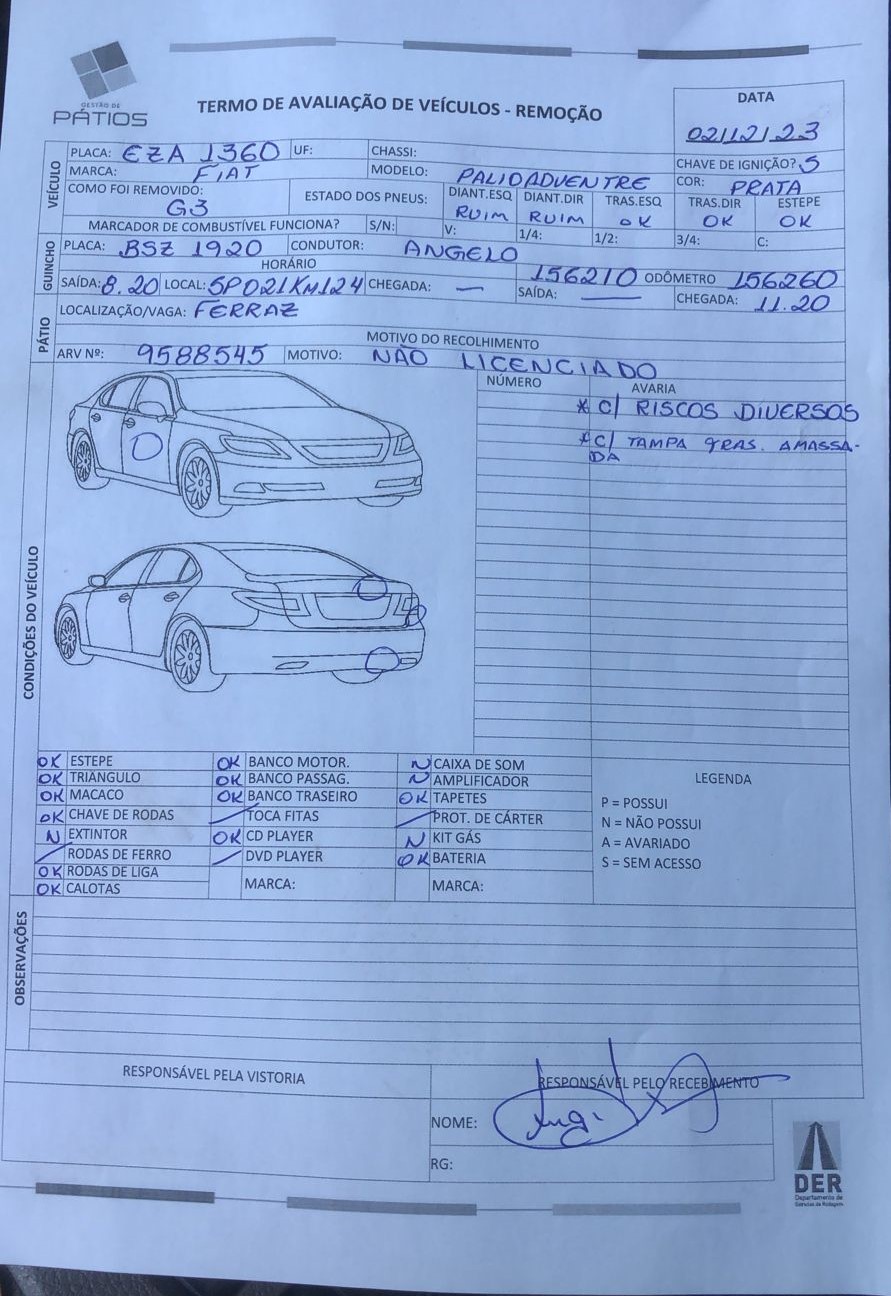 GESTÃO DE
PÁTIOS
TERMO DE AVALIAÇÃO DE VEÍCULOS - REMOÇÃO
DATA
02/12/23
VEÍCULO
PLACA: EZA 1360 UF: CHASSI: CHAVE DE IGNIÇÃO? S
MARCA: FIAT MODELO: PALIOADVENTRE COR: PRATA
COMO FOI REMOVIDO: G3 ESTADO DOS PNEUS: DIANT.ESQ RUIM DIANT.DIR RUIM TRAS.ESQ OK TRAS.DIR OK ESTEPE OK
MARCADOR DE COMBUSTÍVEL FUNCIONA? S/N: V: 1/4: 1/2: 3/4: C:
GUINCHO
PLACA: BSZ 1920 CONDUTOR: ANGELO
HORÁRIO 156210 ODÔMETRO 156260
SAÍDA: 8.20 LOCAL: SP021KM124 CHEGADA: — SAÍDA: — CHEGADA: 11.20
PÁTIO
LOCALIZAÇÃO/VAGA: FERRAZ
MOTIVO DO RECOLHIMENTO
ARV Nº: 9588545 MOTIVO: NÃO LICENCIADO
CONDIÇÕES DO VEÍCULO
NÚMERO AVARIA
* C/ RISCOS DIVERSOS
* C/ TAMPA TRAS. AMASSA-
DA
OK ESTEPE OK BANCO MOTOR. N CAIXA DE SOM
OK TRIÂNGULO OK BANCO PASSAG. N AMPLIFICADOR
OK MACACO OK BANCO TRASEIRO OK TAPETES
OK CHAVE DE RODAS / TOCA FITAS / PROT. DE CÁRTER
N EXTINTOR OK CD PLAYER N KIT GÁS
/ RODAS DE FERRO / DVD PLAYER OK BATERIA
OK RODAS DE LIGA
OK CALOTAS MARCA: MARCA:
LEGENDA
P = POSSUI
N = NÃO POSSUI
A = AVARIADO
S = SEM ACESSO
OBSERVAÇÕES
RESPONSÁVEL PELA VISTORIA
RESPONSÁVEL PELO RECEBIMENTO
NOME:
RG:
DER
Departamento de
Estradas de Rodagem